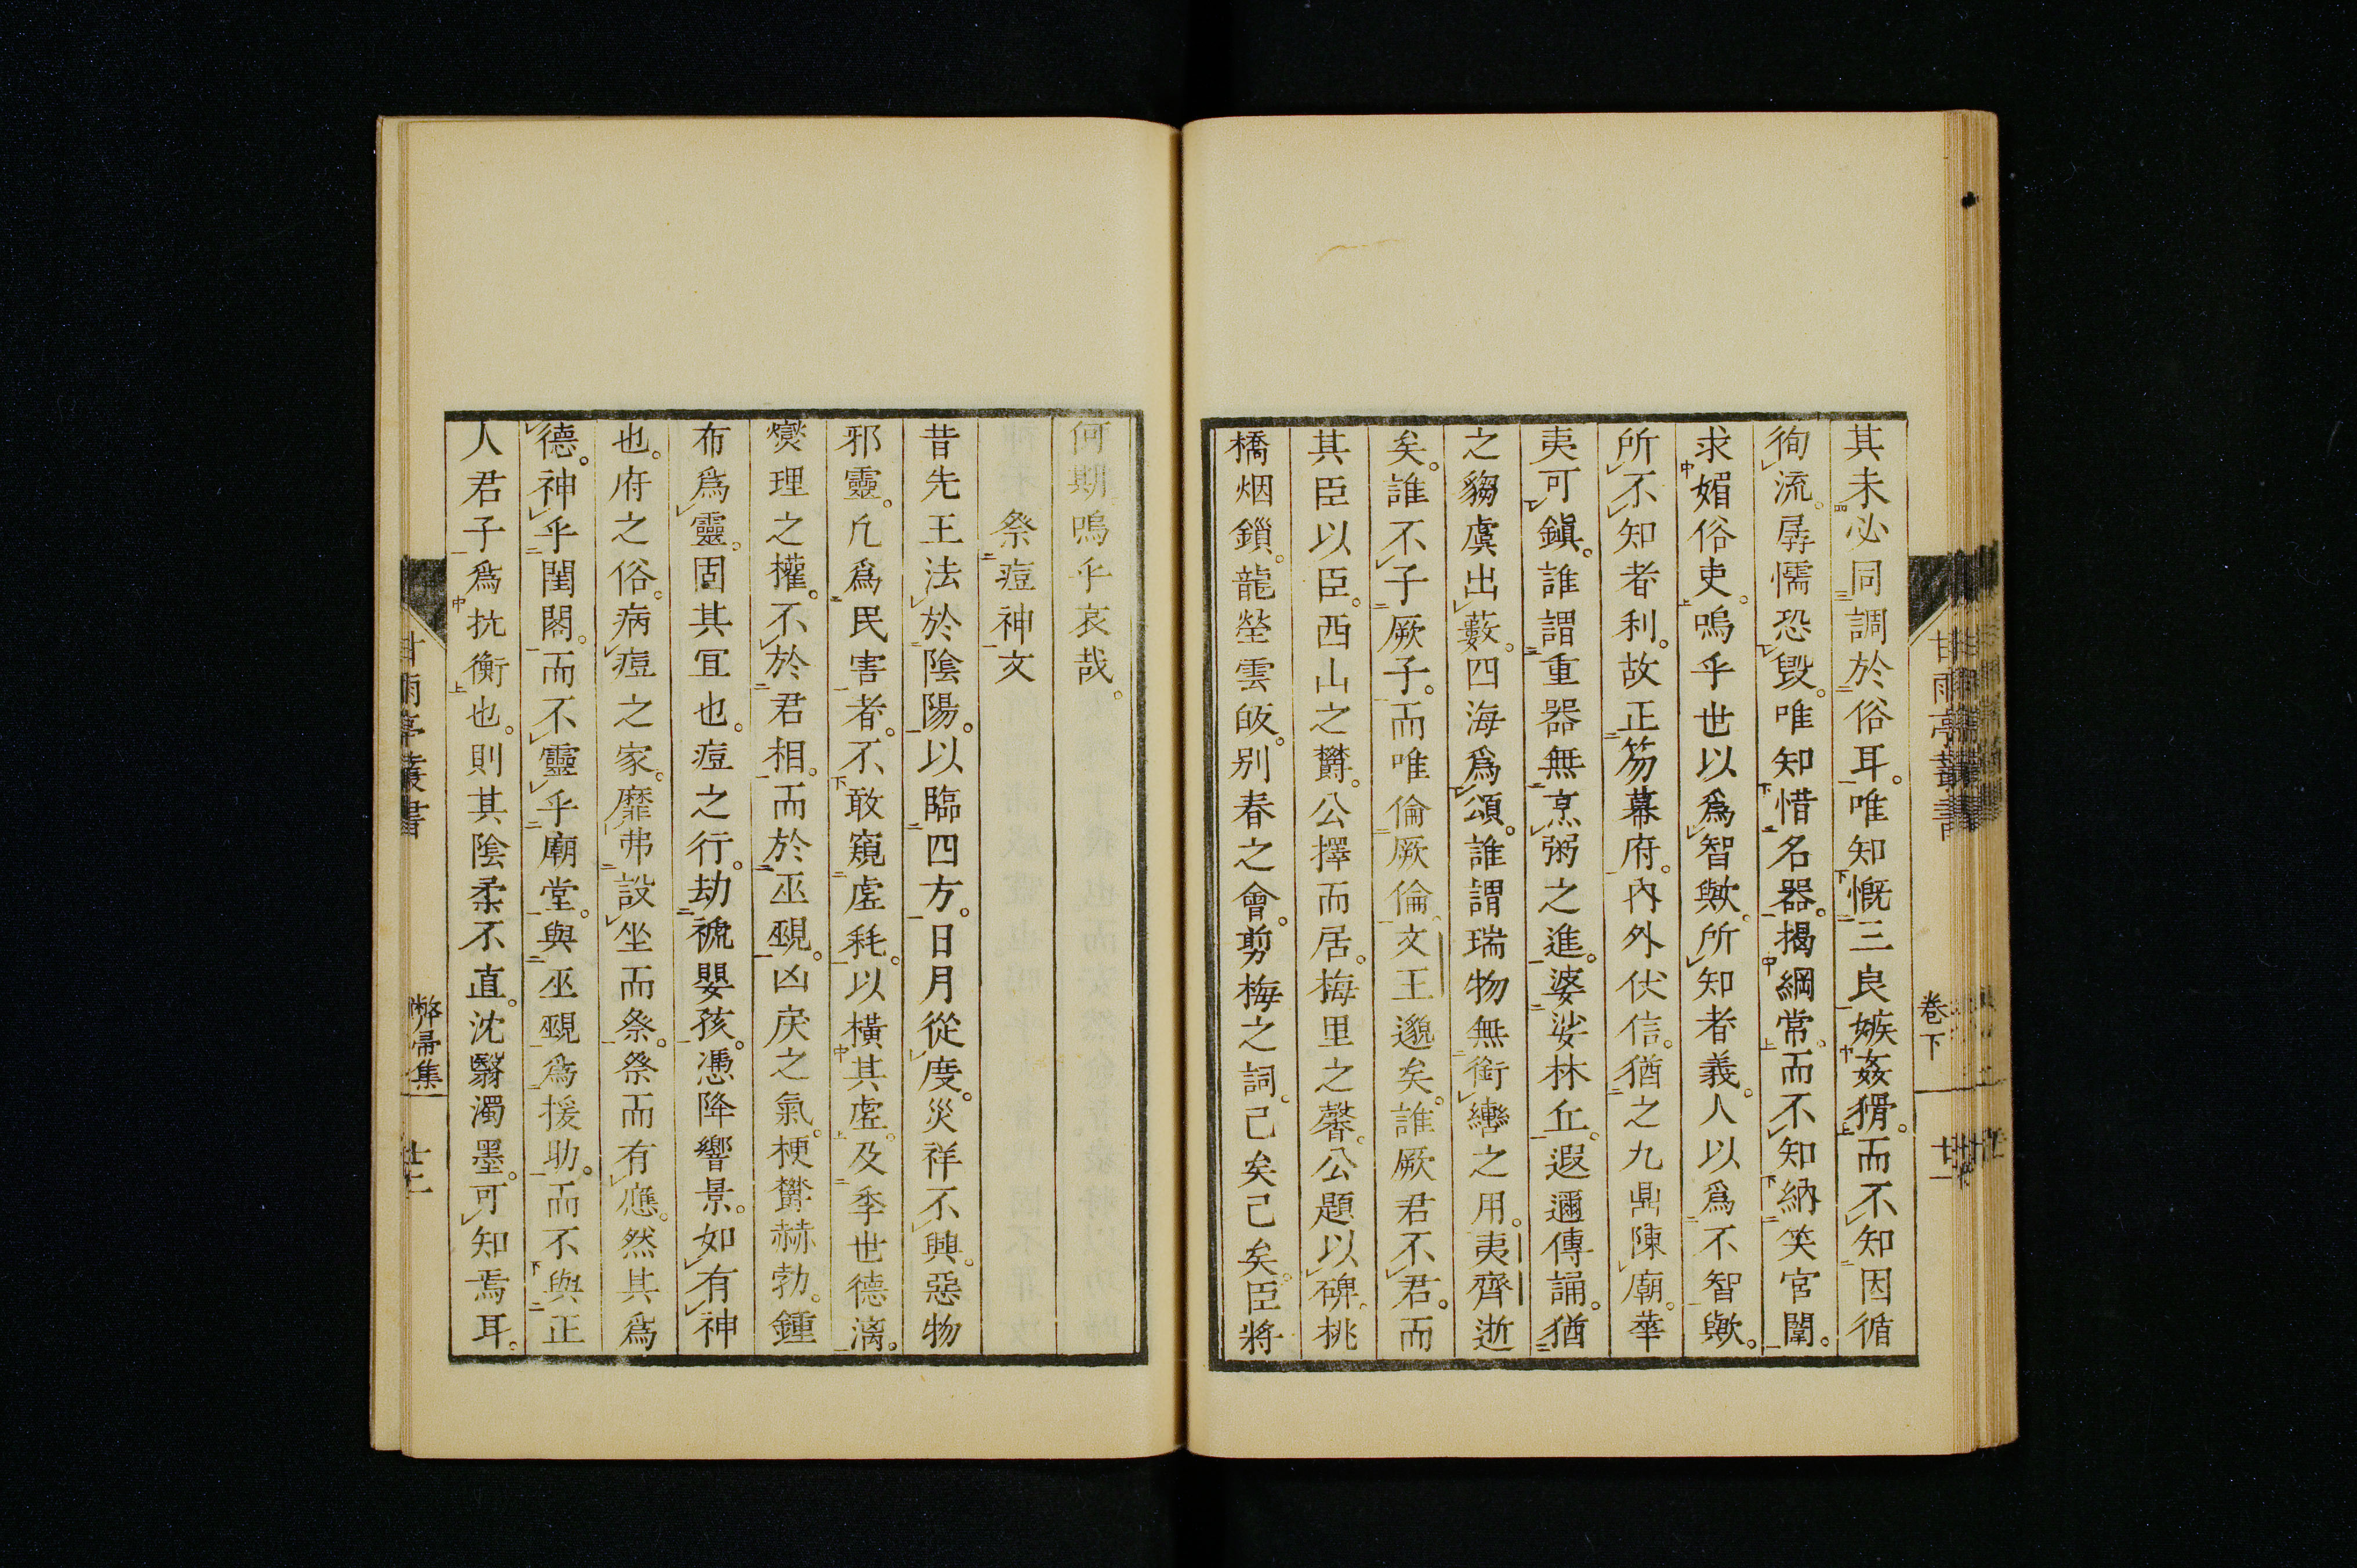 其未必同調於俗耳。唯知慨三良嫉姦猾。而不知因循
徇流。孱懦恐毀。唯知惜名器。揭綱常。而不知納笑宮闈。
求媚俗吏。嗚乎世以爲智歟。所知者義。人以爲不智歟。
所不知者利。故正笏幕府。內外伏信。猶之九鼎陳廟。華
夷可鎭。誰謂重器無烹粥之進。婆娑林丘。遐邇傳誦。猶
之騶虞出藪。四海爲頌。誰謂瑞物無銜轡之用。夷齊逝
矣。誰不子厥子。而唯倫厥倫。文王邈矣。誰厥君不君。而
其臣以臣。西山之欝。公擇而居。梅里之馨。公題以碑。桃
橋烟鎖。龍塋雲皈。別春之會。剪梅之詞。己矣己矣。臣將
何期嗚乎哀哉。
祭痘神文
昔先王法於陰陽。以臨四方。日月從度。災祥不興。惡物
邪靈。凢爲民害者。不敢窺虛耗。以橫其虛。及季世德漓。
爕理之權。不於君相。而於巫覡。凶戾之氣。梗欝赫勃。鍾
布爲靈。固其冝也。痘之行。劫褫嬰孩。憑降響景。如有神
也。府之俗。病痘之家。靡弗設坐而祭。祭而有應。然其爲
德。神乎閨閤。而不靈乎廟堂。與巫覡爲援助。而不與正
人君子爲抗衡也。則其陰柔不直。沈翳濁墨。可知焉耳。
甘雨亭叢書
卷下
廿一
甘雨亭叢書
弊帚集
廿二